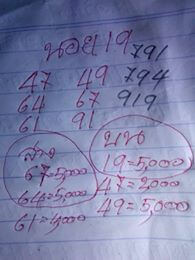 นอย19
791
47 49 794
64 67 919
61 91
ล่าง
67=5,000
64=5,000
61=4,000
บน
19=5,000
47=2,000
49=5,000